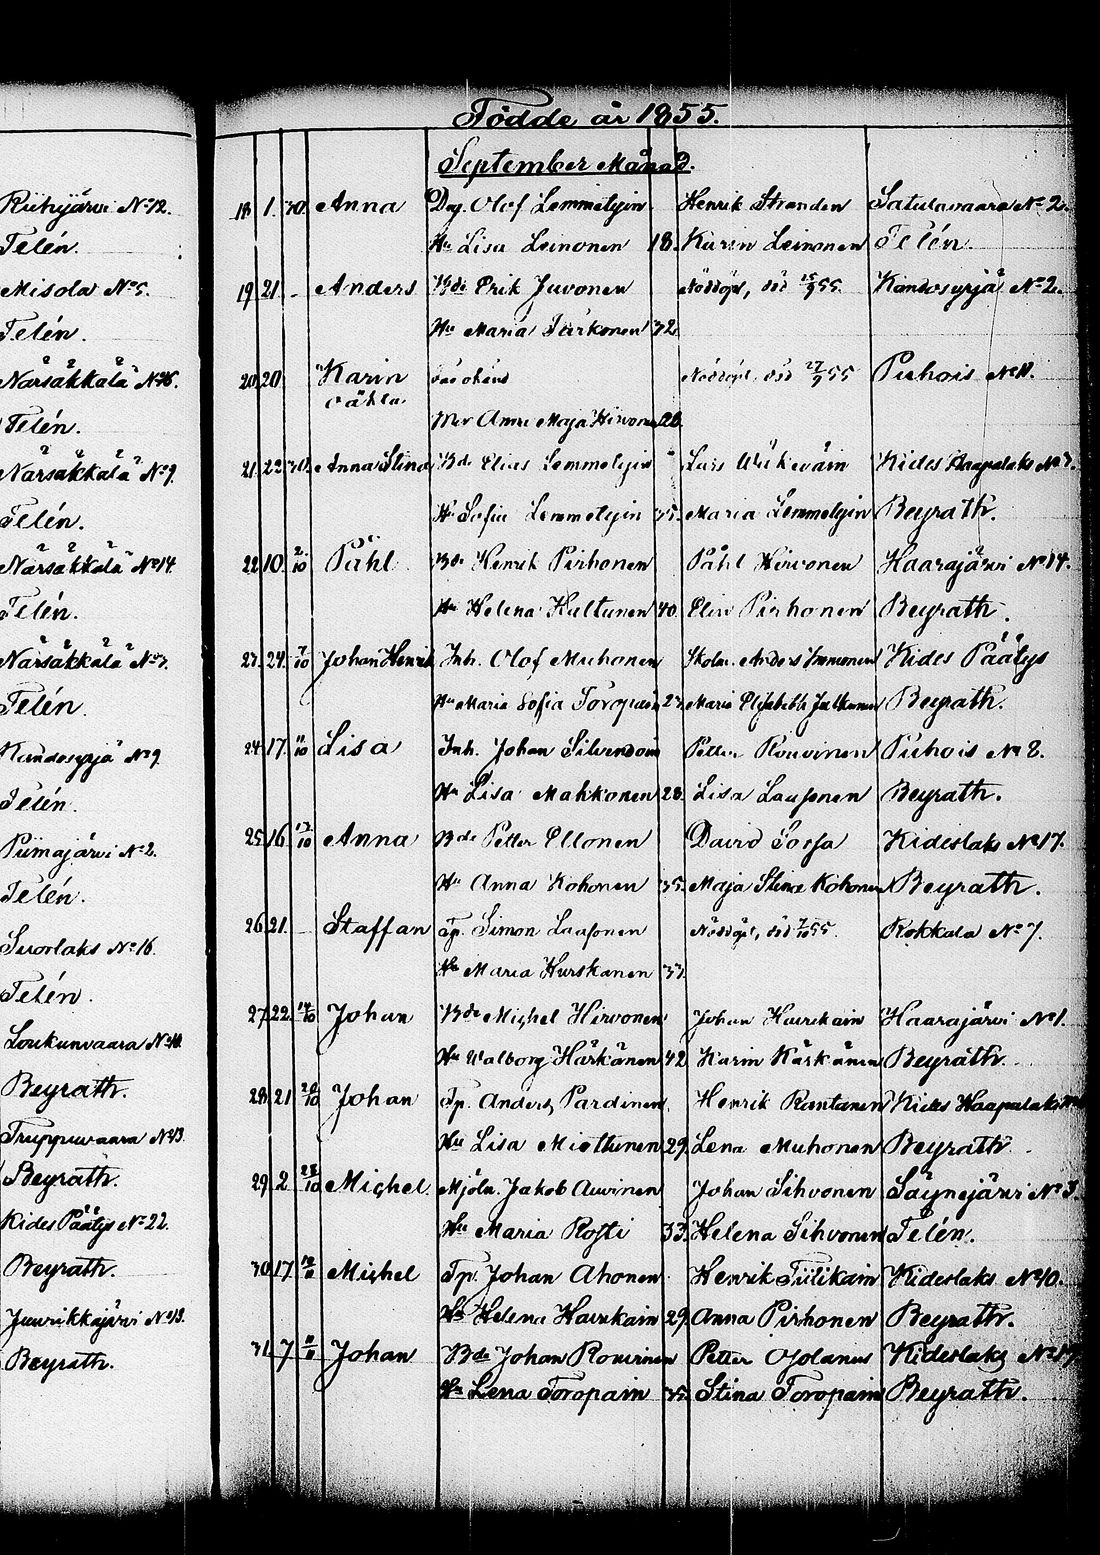 Riihijärvi No 12.
Telén.
Misola No 5.
Telén.
Närsäkkälä No 16.
Telén.
Närsäkkälä No 9.
Telén.
Närsäkkälä No 14.
Telén.
Närsäkkälä No 7.
Telén.
Kundosyrjä No 9.
Telén.
Piimajärvi No 2.
Telén.
Suorlaks No 16.
Telén.
Loukunvaara No 10.
Beyrath.
Truppuvaara No 13.
Beyrath.
Kides Päätys No 22.
Beyrath.
Juurikkajärvi No 13.
Beyrath.
Födde år 1855.
September Månad.
18 1. 30. Anna Drg. Olof Lemmetyin Henrik Stranden Satulavaara No 2.
Hu Lisa Leinonen 18. Karin Leinonen Telén
19 21. - Anders Bde Erik Juvonen Nöddöpt, död 25/9 55. Kundosyrjä No 2.
Hu Maria Turkonen 32.
20 20. Karin oäkta Nöddöpt, död 27/9 55 Puhois No 11.
Anna Maja Hirvonen 26.
21. 22. 30. Anna Stina Bde Elias Lemmetyin Lars Kides Haapalaks No 7.
Hu Sofia Lemmetyin 35. Maria Lemmetyin Beyrath.
22 10. 2/10 Påhl Bde Henrik Pirhonen Påhl Hirvonen Haarajärvi No 14.
Hu Helena Hultunen 40. Elin Pirhonen Beyrath.
23. 24. 7/10 Johan Henrik Inh. Olof Muhonen Anders Immonen Kides Päätys
Hu Maria Sofia Toropain 27. Maria Elisabeth Jalkanen Beyrath.
24. 17. 11/10 Lisa Inh. Johan Silvendoin Petter Rouvinen Puhois No 8.
Hu Lisa Makkonen 28. Lisa Laussonen Beyrath.
25. 16 13/10 Anna Bde Petter Ellonen David Sorsa Kideslaks No 17.
Hu Anna Kohonen 35. Maja Stina Kohonen Beyrath.
26. 21. Staffan Tp. Simon Laassonen Nöddöpt, död 7/10 55. Kokkala No 7.
Hu Maria Hurskanen 33.
27. 22. 14/10 Johan Bde Michel Hirvonen Johan Haarajärvi No 1.
Hu Walborg Härkänen 42. Karin Beyrath.
28. 21 20/10 Johan Tp. Anders Pardinen Henrik Rantanen Kides Haapalaks
Hu Lisa Miettunen 29. Lena Muhonen Beyrath.
29. 2 28/10 Michel. Mjöln. Jakob Auvinen Johan Sihvonen Säynejärvi No 3.
Hu Maria Rossi 33. Helena Sihvonen Telén.
30. 17. Michel Tp. Johan Ahonen Henrik Tiilikain Kideslaks No 10.
Hu Helena Haurikain 29. Anna Pirhonen Beyrath.
31. 7 Johan Bde Johan Rouvinen Petter Kideslaks
Hu Lena Toropain 35. Stina Toropain Beyrath.